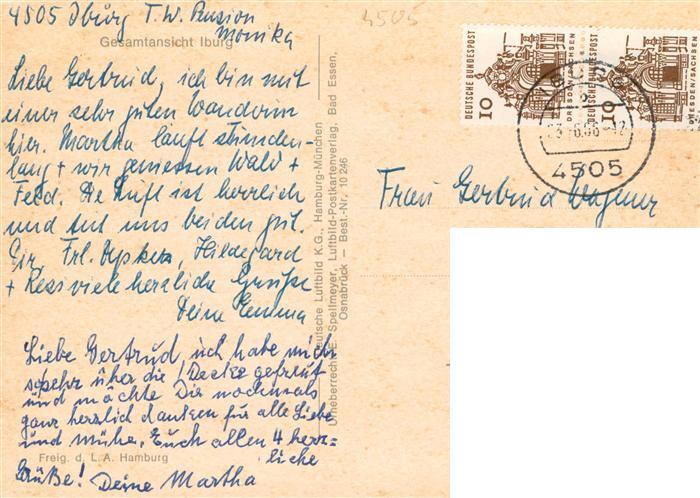 4505 Iburg T.W. Pension
Monika
4505
Gesamtansicht Iburg
Liebe Gertrud, ich bin mit
einer sehr guten Wanderin
hier. Martha läuft stunden-
lang + wir geniessen Wald +
Feld. Die Luft ist herrlich
und tut uns beiden gut.
Dir, Frl. Hildegard
+ Ress viele herzliche Grüße
Deine Emma
Liebe Gertrud, ich habe mich
sehr über die Decke gefreut
und möchte Dir nochmals
ganz herzlich danken für alle Liebe
und mühe. Euch allen 4 herz=
liche
Grüße! Deine Martha
Freig. d. L. A. Hamburg
Deutsche Luftbild K.G., Hamburg-München
Urheberrecht: E. Spellmeyer, Luftbild-Postkartenverlag, Bad Essen,
Osnabrück — Best.-Nr. 10 246
DEUTSCHE BUNDESPOST
10
DRESDEN/SACHSEN
DEUTSCHE BUNDESPOST
10
DRESDEN/SACHSEN
4505
Frau Gertrud Wagener